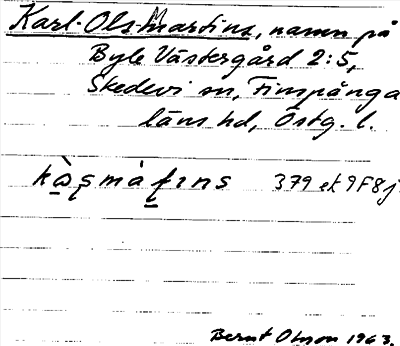 Karl-Ols-Martins, namn på
Byle Västergård 2:5,
Skedevi sn, Finspånga
läns hd, Östg. l.
379 et 9F8j
Bernt Olsson 1963.